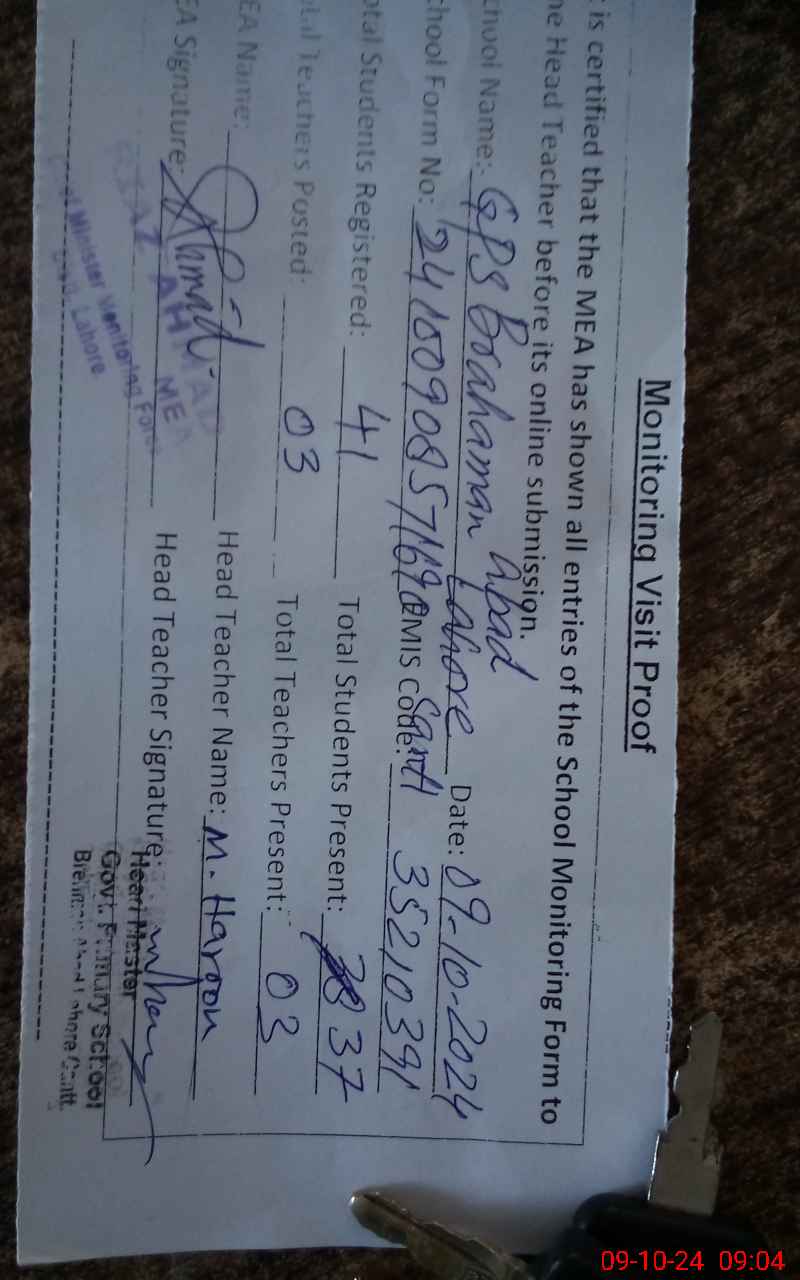 Monitoring Visit Proof
is certified that the MEA has shown all entries of the School Monitoring Form to
he Head Teacher before its online submission.
chool Name: GPS Brahaman Abad Lahore Cantt Date: 09-10-2024
chool Form No: EMIS Code: 35210391
otal Students Registered: 41 Total Students Present: 37
otal Teachers Posted: 03 Total Teachers Present: 03
EA Name: Head Teacher Name: M. Haroon
EA Signature: Ahmad Head Teacher Signature:
AHMAD
MEA
Minister Monitoring Force
Lahore.
Head Master
Govt. Primary School
Lahore Cantt.
09-10-24 09:04